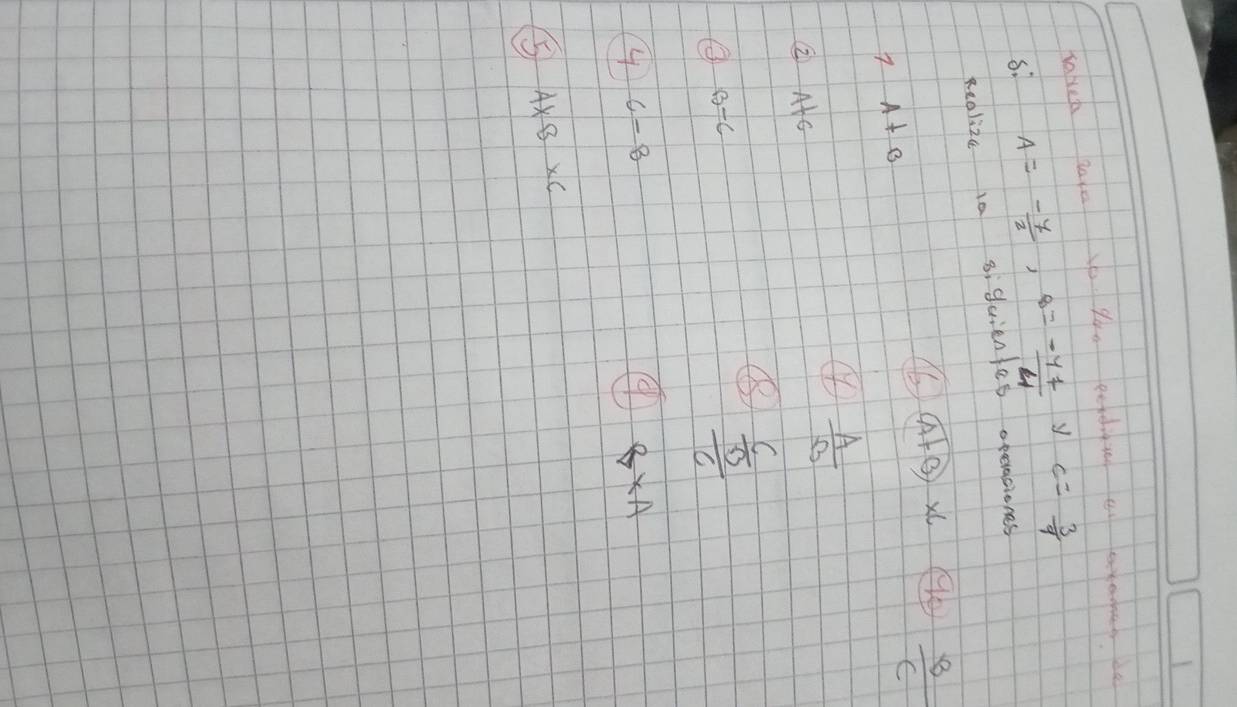 tarea para
Si A = -7/2 , B = -17/4 y C = 3/9
realiza la siguientes operaciones
1 A + B
② A+C
③ B-C
④ C-B
⑤ AxB xC
⑥ (A+B) xC
⑦ A/B
⑧ C/B/C
⑨ B x A
⑩ B/C